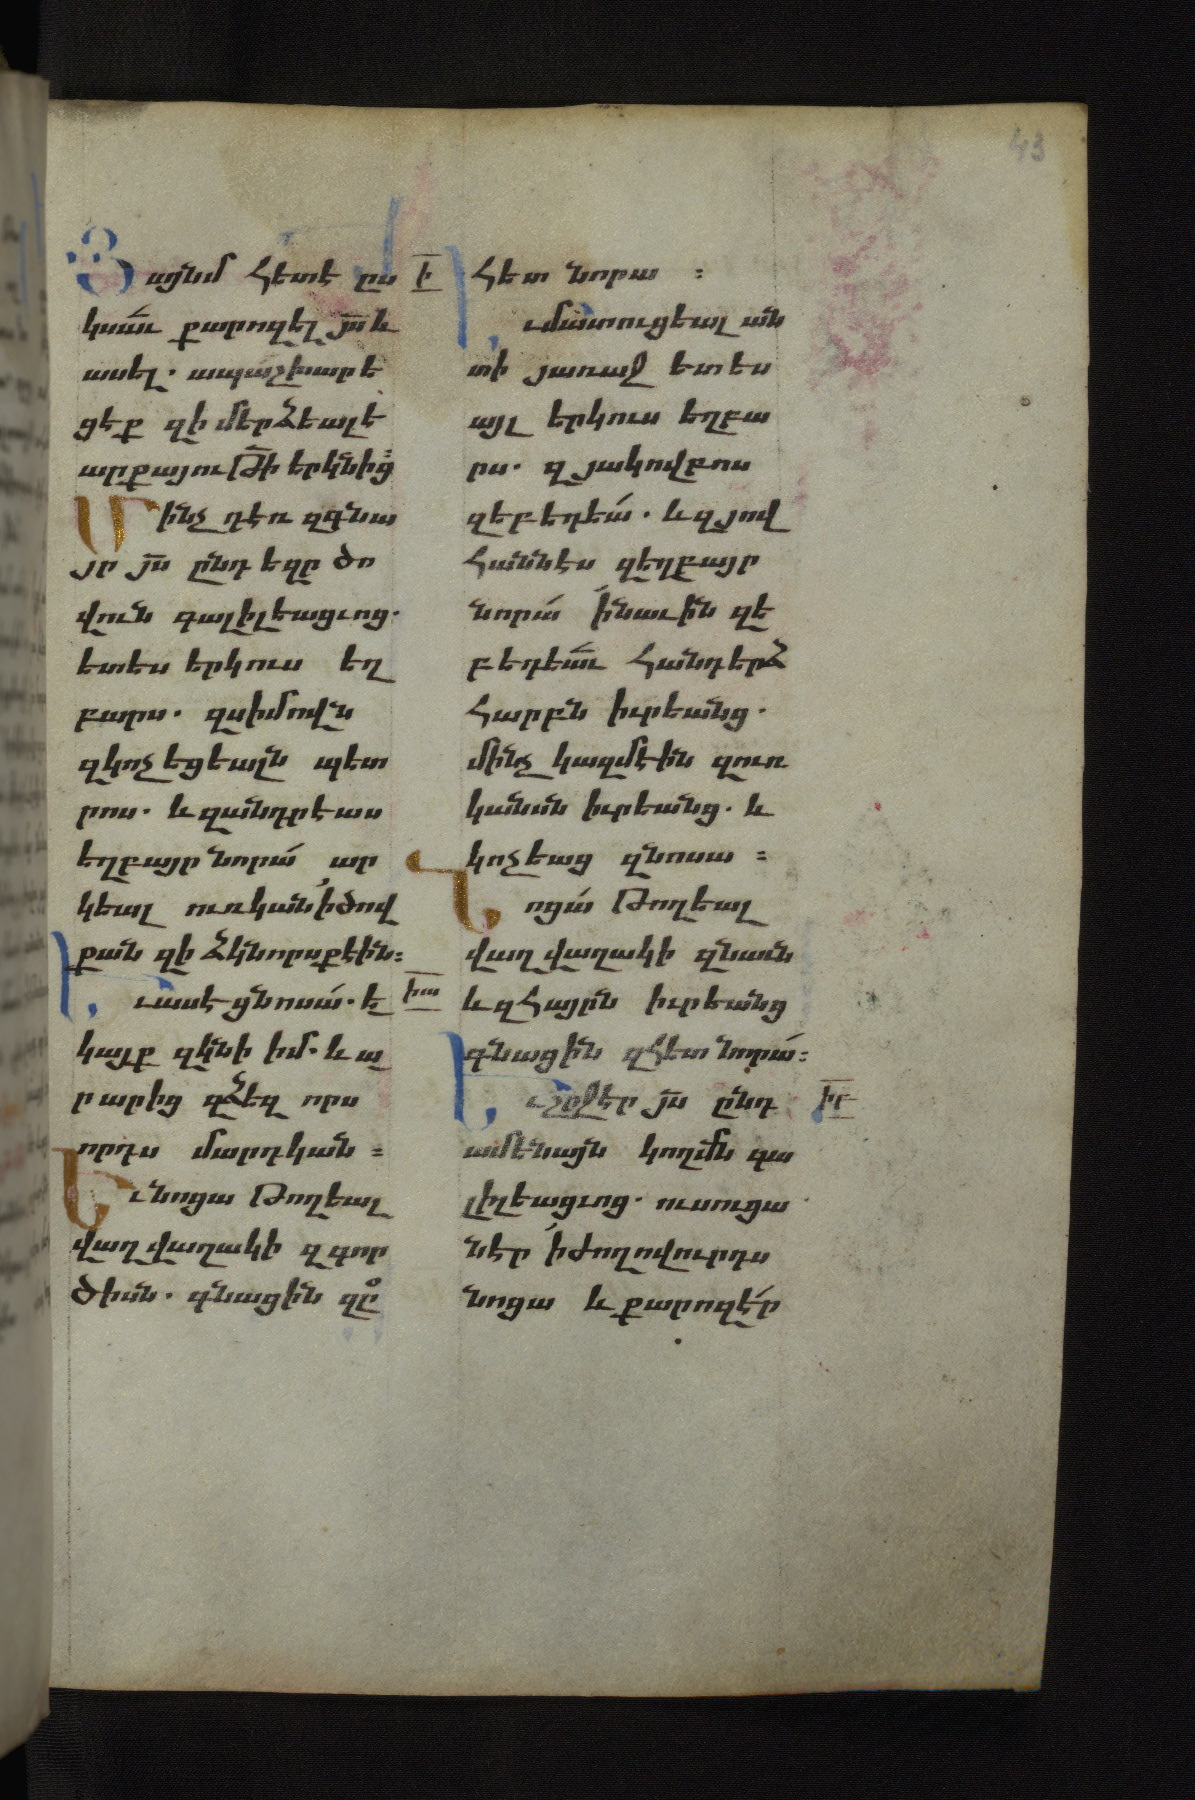 43
Յայնմ հետէ ըս
կսաւ քարոզել յս և
ասել. ապաշխարե
ցեք զի մերձեալ է
արքայութի երկնից:
Մինչ դեռ զգնա
յր յս ընդ եզր ծո
վուն գալիլեացւոց.
ետես երկուս եղ
բարս. զսիմովն
զկոչեցեալն պետ
րոս. և զանդրէաս
եղբայր նորա՛ ար
կեալ ուռկան ՛ի ծով
քան զի ձկնորսք էին:
Եւ ասէ ցնոսա՛. ե
կայք զկնի իմ. և ա
րարից զձեզ որս
որդս մարդկան:
Եւ նոցա թողեալ
վաղվաղակի զգոր
ծիսն. գնացին զը
ի
իա
հետ նորա:
Եւ մատուցեալ ան
տի յառաջ ետես
այլ երկուս եղբա
րս. զյակովբոս
զեբեդեա՛. և զյով
հաննէս զեղբայր
նորա՛ ՛ի նաւին զե
բեդեաւ հանդերձ
հարբն իւրեանց.
մինչ կազմէին զուռ
կանսն իւրեանց. և
կոչեաց զնոսա:
Նոցա՛ թողեալ
վաղվաղակի զնաւն
և զհայրն իւրեանց
գնացին զհետ նորա՛:
Եւ շրջէր յս ընդ
ամենայն կողմն գա
լիլեացւոց. ուսուցա
նէր ՛ի ժողովուրդս
նոցա և քարոզէր
իբ